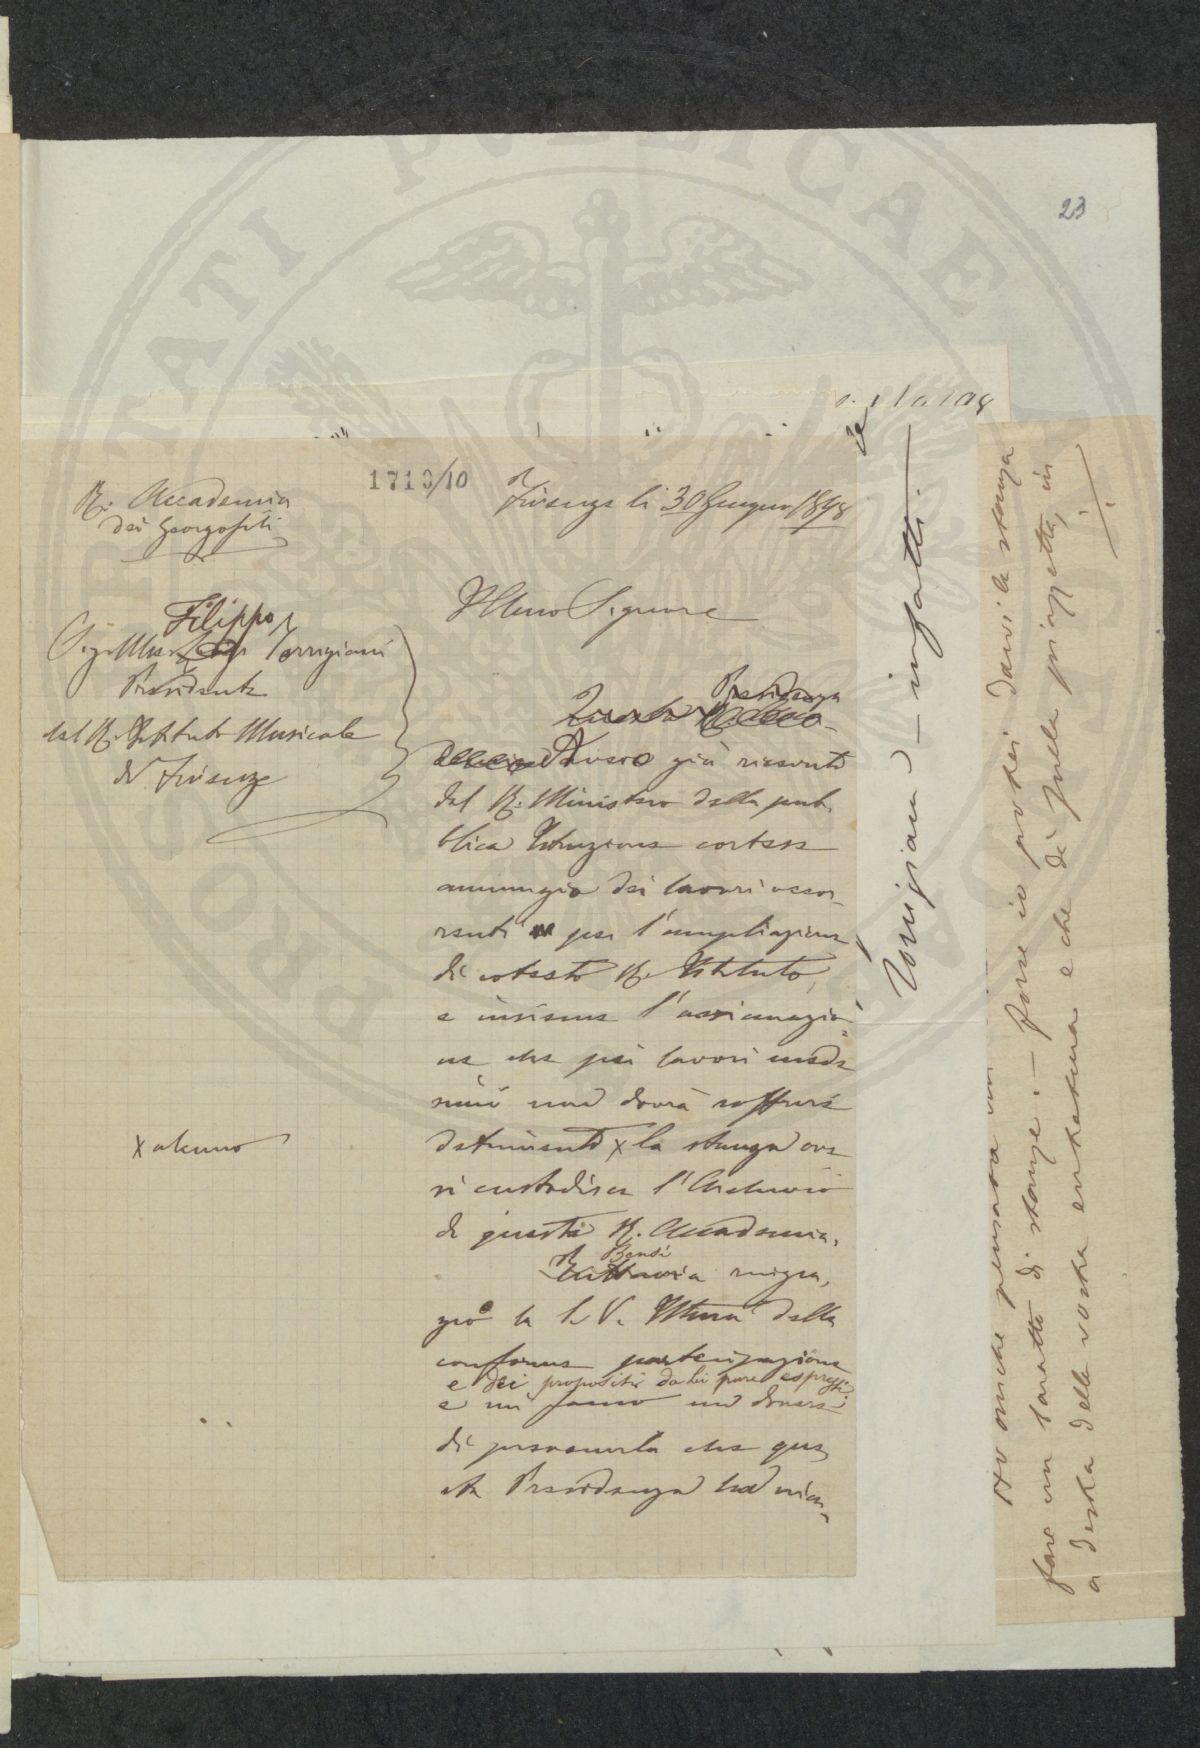 23
1713/10
R. Accademia
dei Georgofili
Firenze li 30 Giugno 1898
Filippo
Sig. March. Torrigiani
Presidente
del R. Istituto Musicale
di Firenze
Illmo Signore
Presidenza
Questa
Avevo già ricevuto
dal R. Ministero della pub-
blica Istruzione cortese
annunzio dei lavori occor-
renti per l'ampliazione
di cotesto R. Istituto,
e insieme l'assicurazio-
ne che pei lavori mede
simi non dovrà soffrire
detrimento x la stanza ove
si custodisce l'Archivio
di questa R. Accademia.
x alcuno
Bensì
Tuttavia ringra,
zio la S. V. Illma della
conforme partecipazione
e dei propositi da Lei pure espressi,
e mi un dovere
di prevenirla che que,
sta Presidenza ha
Torrigiani – infatti –
Ho anche pensato
fare un baratto di stanze. – Forse io potrei darvi la stanza
a destra della vostra entratura e che di quella piazzetta, in
PUBLICAE